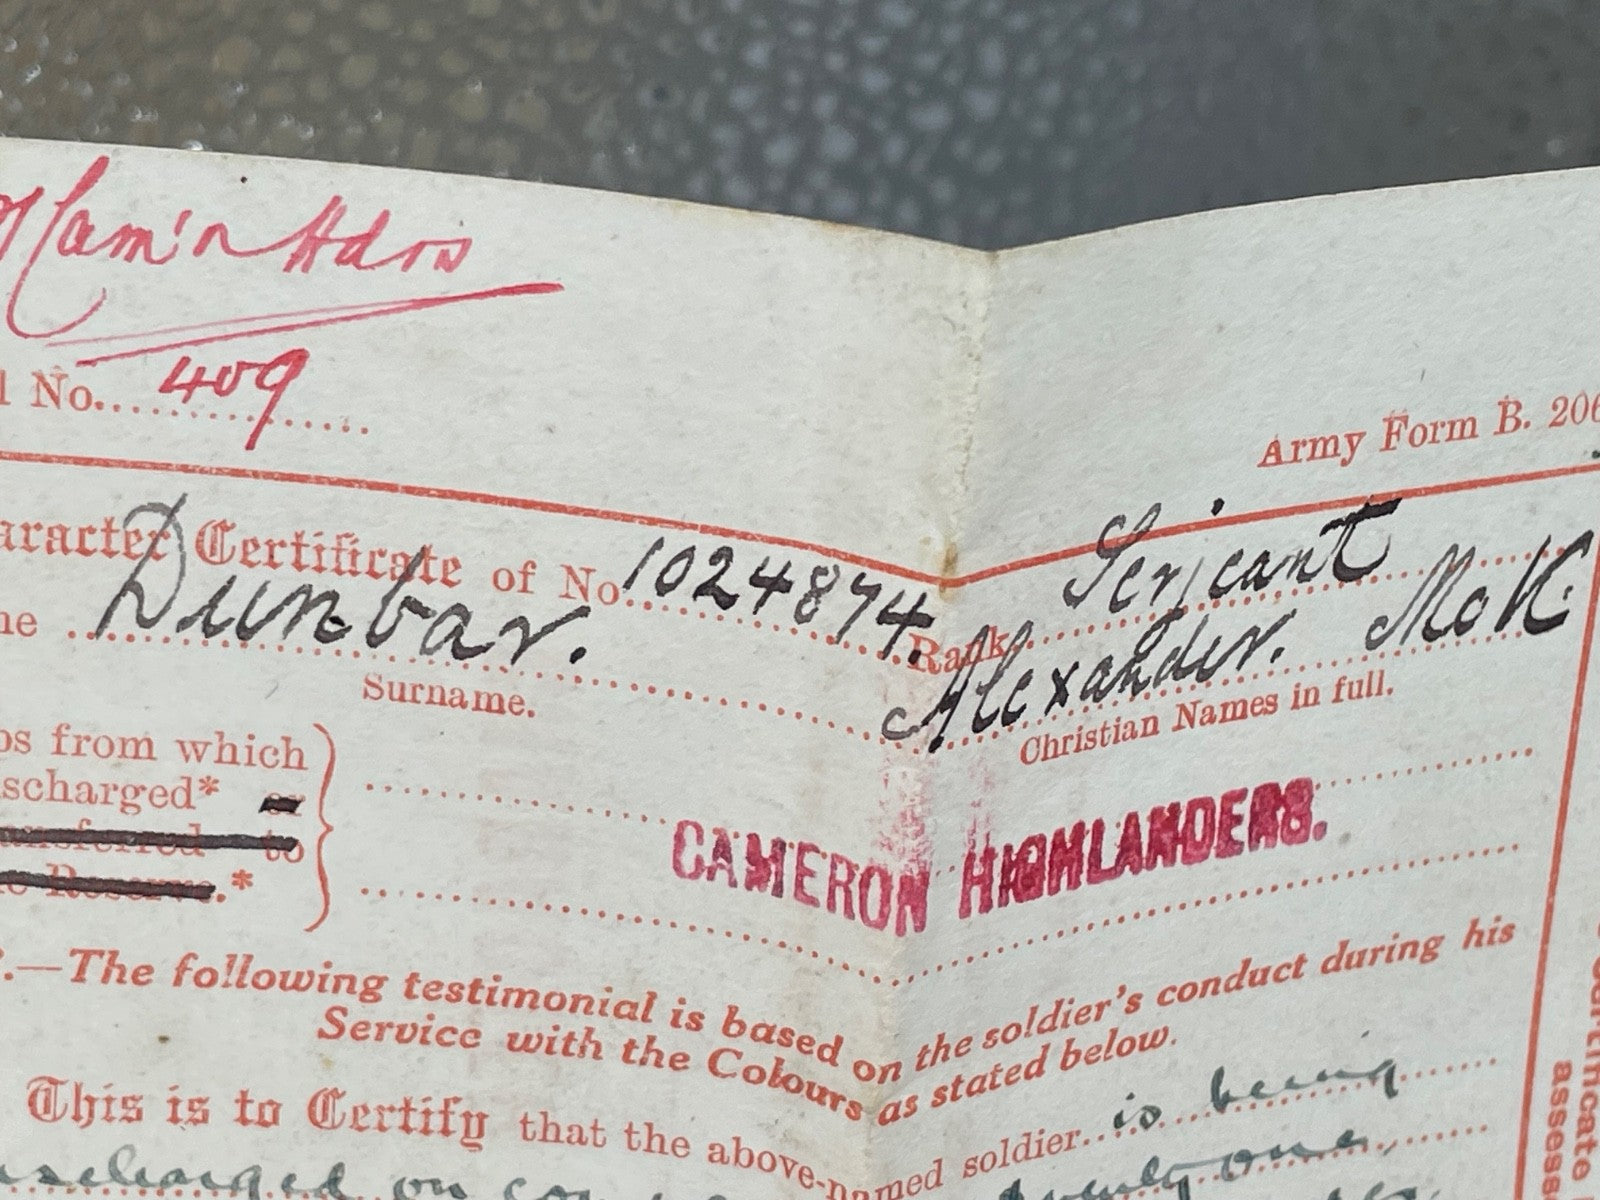 Cam'n Hdrs
l No. 409
Army Form B. 206
aracter Certificate of No. 1024874. Rank Serjeant
me Dunbar. Alexander. McK
Surname. Christian Names in full.
ps from which
scharged* or
ansferred to
e Reserve.*
CAMERON HIGHLANDERS.
.—The following testimonial is based on the soldier's conduct during his
Service with the Colours as stated below.
This is to Certify that the above-named soldier is being
discharged on twenty one
certificate
assess